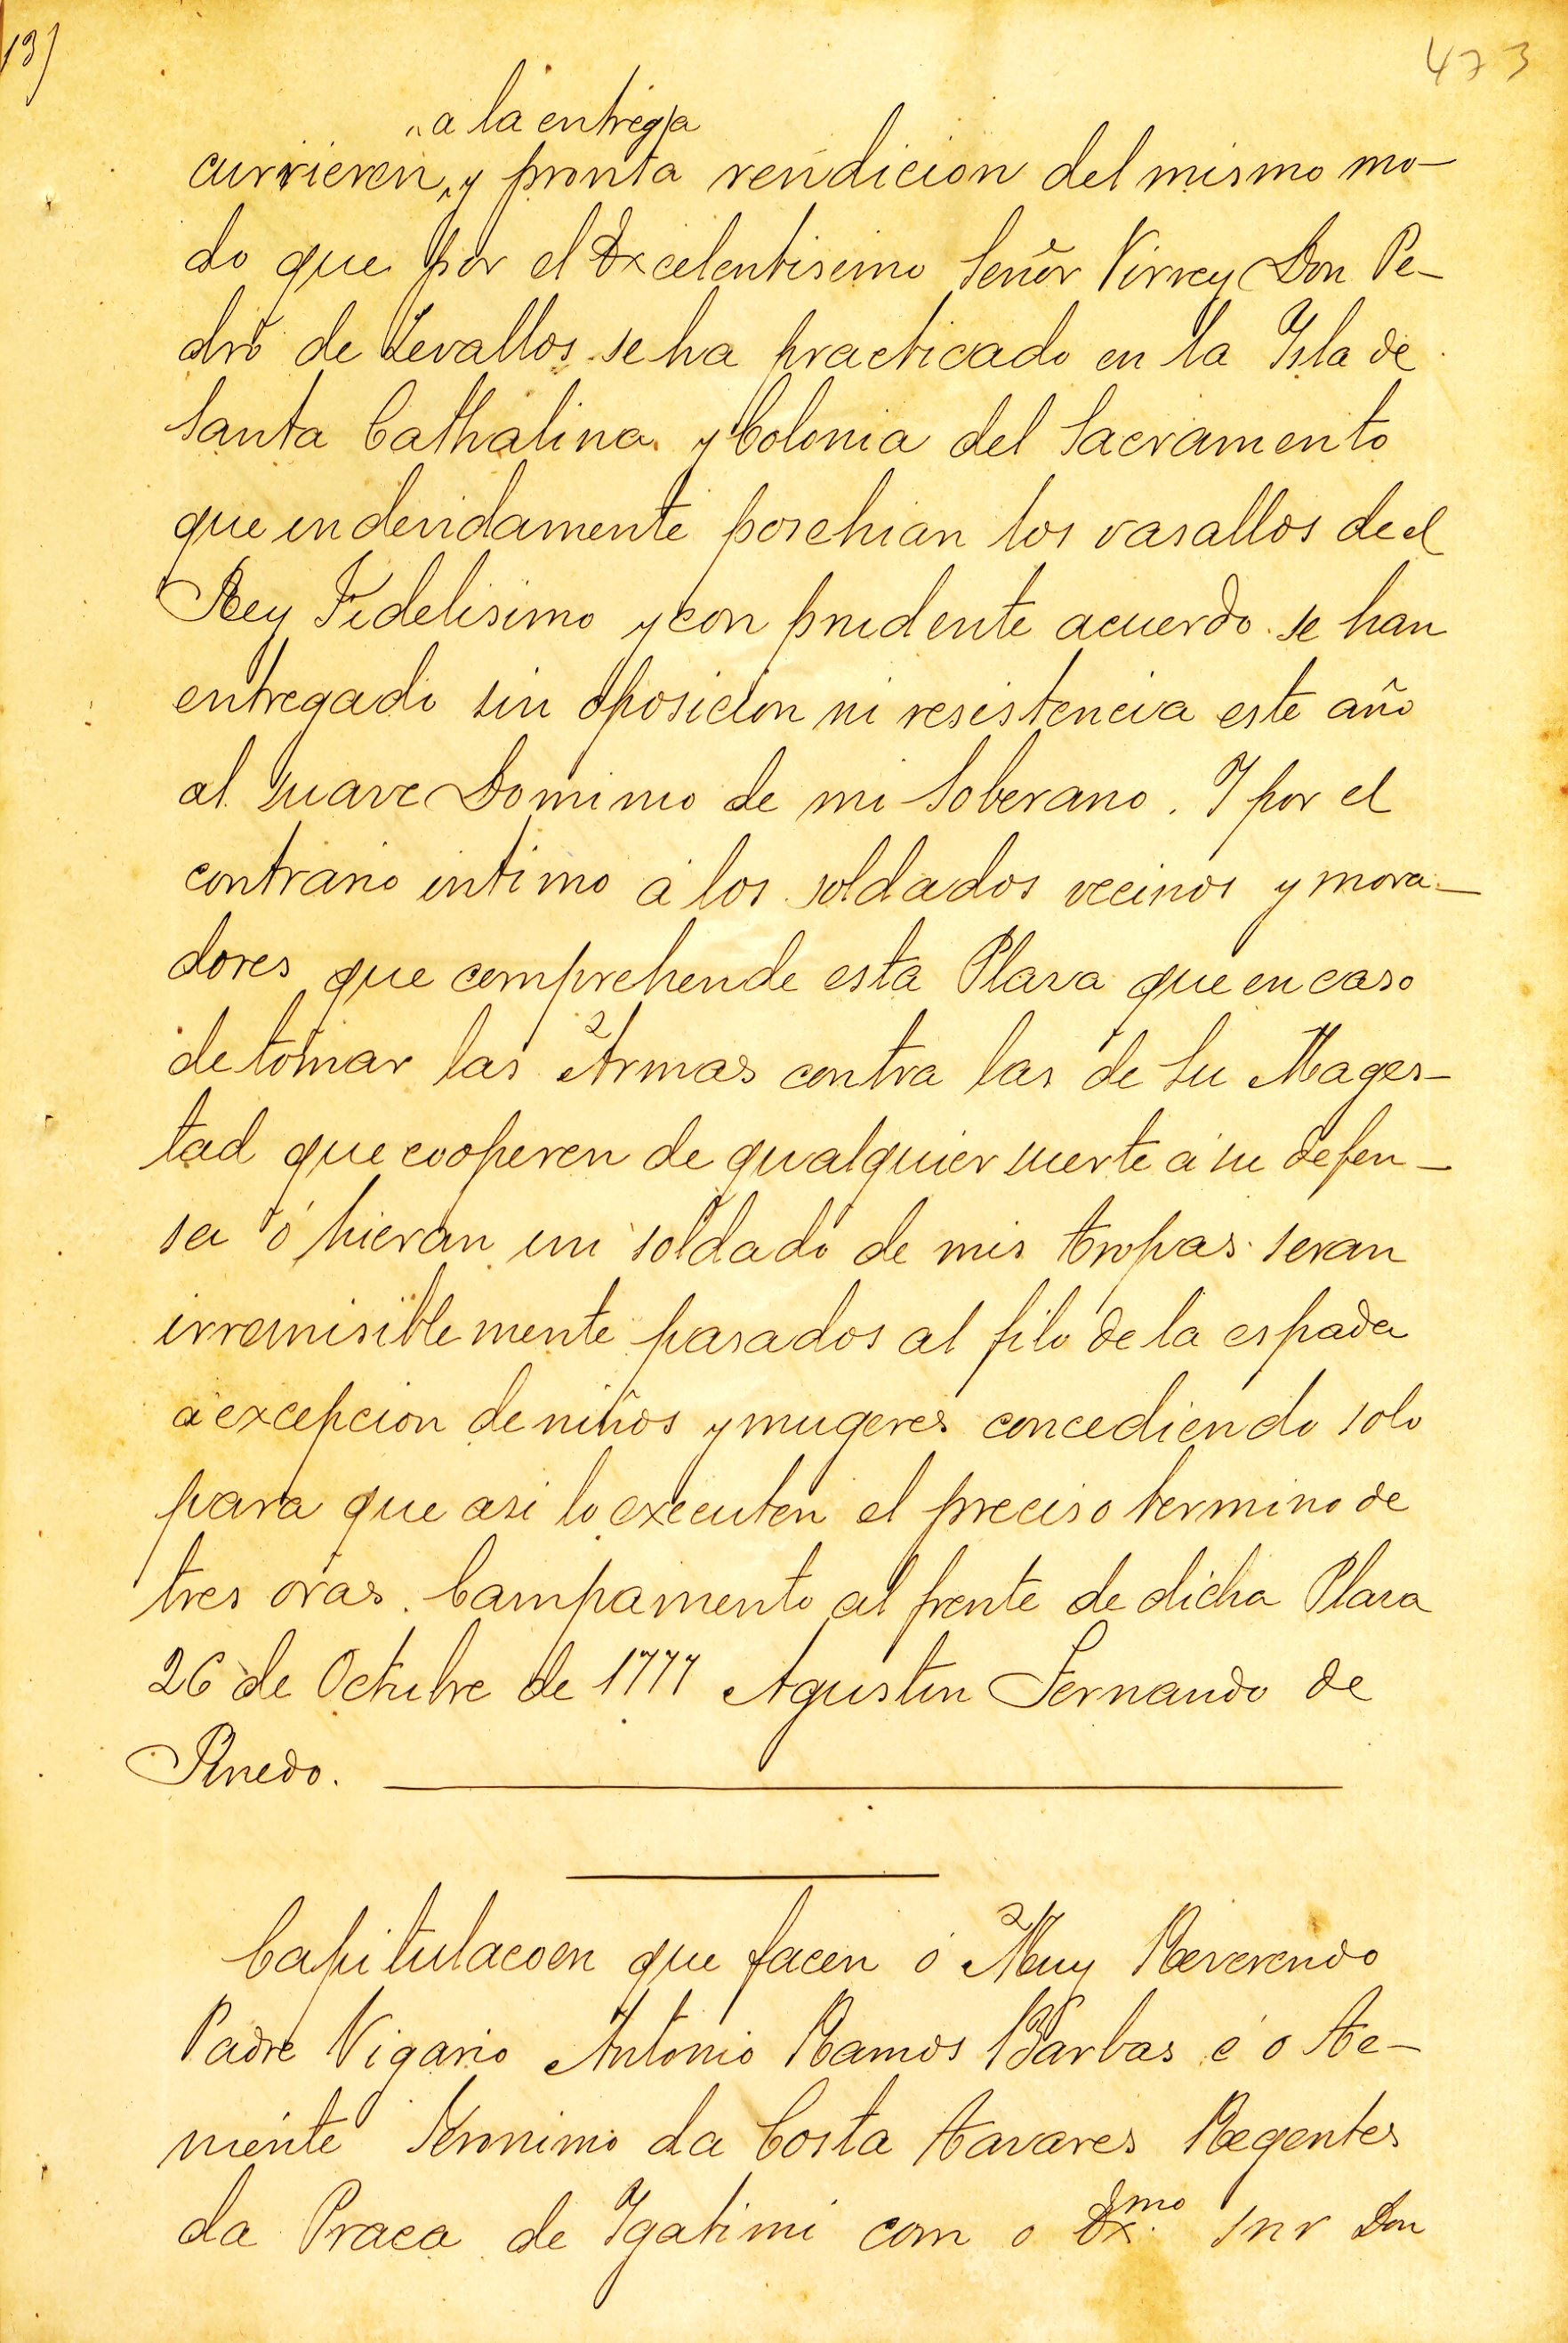 13)
473
"a la entrega
currieren, y pronta rendicion del mismo mo-
do que por el Excelentisimo Señor Virrey Don Pe-
dro de Zevallos se ha practicado en la Ysla de
Santa Cathalina y Colonia del Sacramento
que indevidamente posehian los vasallos de el
Rey Fidelisimo y con prudente acuerdo se han
entregado sin oposicion ni resistencia este año
al suave Dominio de mi Soberano. Y por el
contrario intimo á los soldados vecinos y mora-
dores que comprehende esta Plaza que en caso
de tomar las Armas contra las de Su Mages-
tad que cooperen de qualquier suerte á su defen-
sa ó hieran un soldado de mis tropas seran
irremisiblemente pasados al filo de la espada
á excepcion de niños y mugeres concediendo solo
para que asi lo executen el preciso termino de
tres oras. Campamento al frente de dicha Plaza
26 de Octubre de 1777 Agustin Fernando de
Pinedo.
Capitulacoen que facen ó Muy Reverendo
Padre Vigario Antonio Ramos Barbas é o Te-
niente Jeronimo da Costa Tavares Regentes
da Praca de Ygatimi com o Exmo. Snr Don